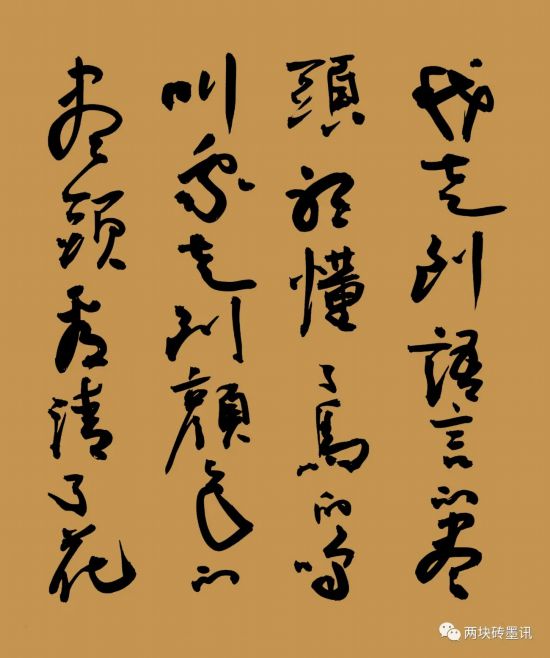 我走到語言的盡
頭聽懂了鳥的鳴
叫我走到顔色的
盡頭看清了花
两块砖墨讯